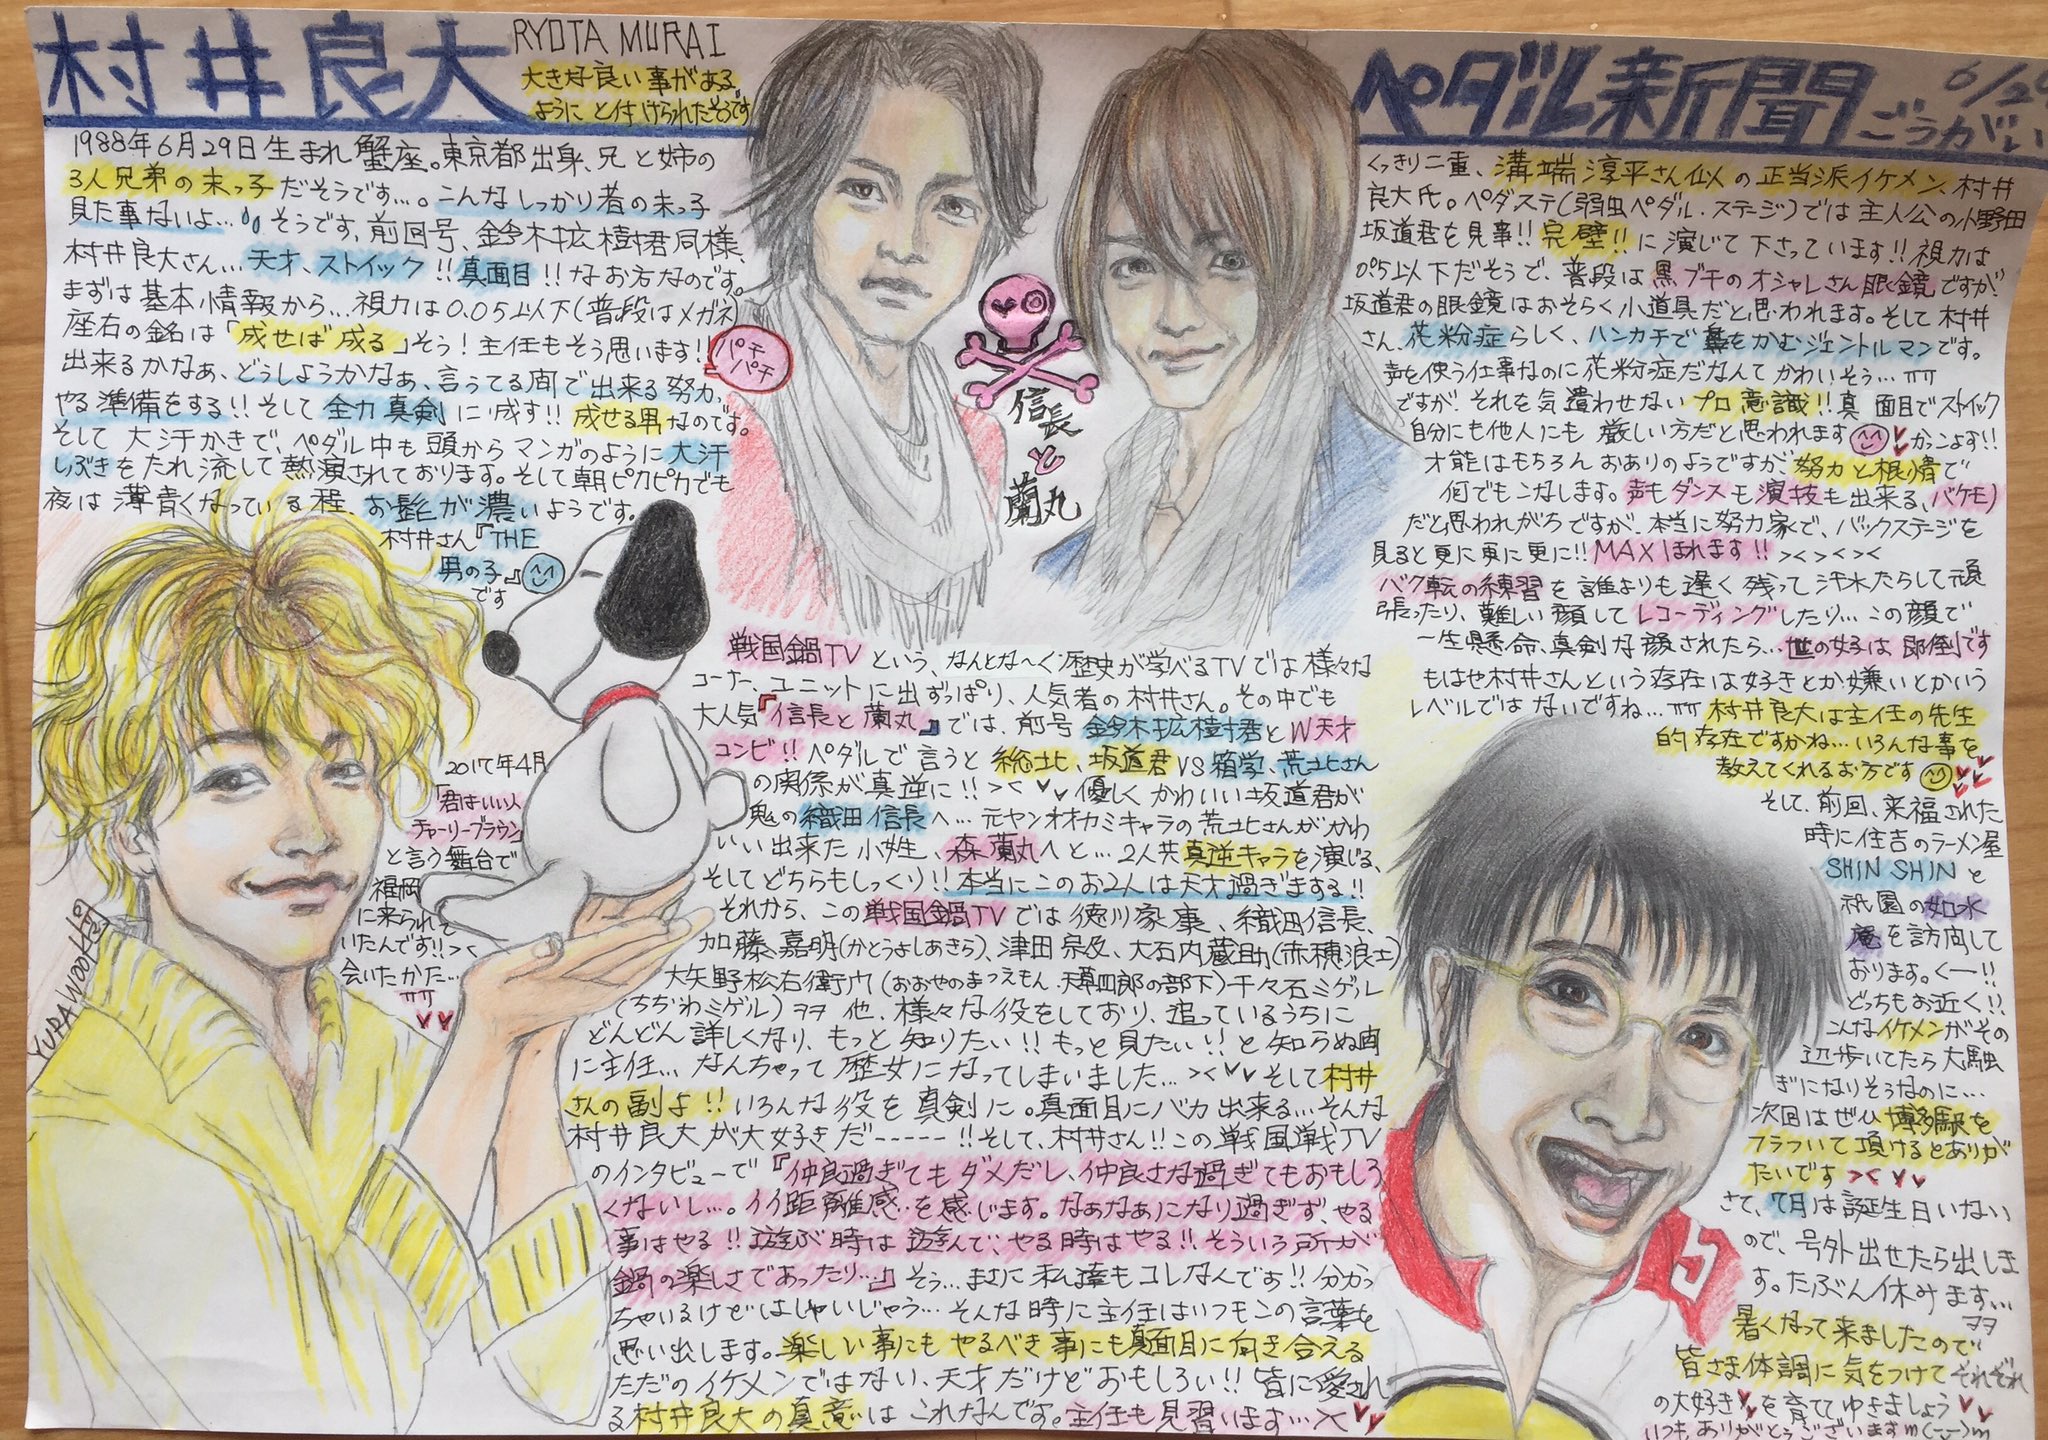 村井良大
RYOTA MURAI
大きな良い事がある
ようにと付けられたそうです
ペダル新聞
ごうがい
1988年6月29日生まれ蟹座。東京都出身、兄と姉の
3人兄弟の末っ子だそうです…。こんなしっかり者の末っ子
見た事ないよ…そうです、前回号、鈴木拡樹君同様、
村井良大さん…天才、ストイック!!真面目!!なお方なのです。
まずは基本情報から…視力は0.05以下(普段はメガネ)
座右の銘は「成せば成る」そう!主任もそう思います!!
パチパチ
出来るかなぁ、どうしようかなぁ、言うてる間で出来る努力、
やる準備をする!!そして全力真剣に成す!!成せる男なのです。
そして大汗かきで、ペダル中も頭からマンガのように大汗
しぶきをたれ流して熱演されております。そして朝ピカピカでも
夜は薄青くなっている程、お髭が濃いようです。
村井さん『THE
男の子』
です
2017年4月
「君はいい人
チャーリーブラウン」
と言う舞台で
福岡
に来られて
いたんです!!><
会いたかた…
YURA WOOK
信長
と
蘭丸
戦国鍋TVという、なんとな〜く歴史が学べるTVでは様々な
コーナー、ユニットに出ずっぱり、人気者の村井さん。その中でも
大人気『信長と蘭丸』では、前号鈴木拡樹君とW天才
コンビ!!ペダルで言うと総北、坂道君VS箱学、荒北さん
の関係が真逆に!!><優しくかわいい坂道君が
鬼の織田信長へ…元ヤンオオカミキャラの荒北さんがかわ
いい出来た小姓、森蘭丸へと…2人共真逆キャラを演じる、
そしてどちらもしっくり!!本当にこのお2人は天才過ぎまする!!
それから、この戦国鍋TVでは徳川家康、織田信長、
加藤嘉明(かとうよしあきら)、津田宗及、大石内蔵助(赤穂浪士)
大矢野松右衛門(おおやのまつえもん.天草四郎の部下)千々石ミゲル
(ちぢわミゲル)ヲヲ他、様々な役をしており、追っているうちに
どんどん詳しくなり、もっと知りたい!!もっと見たい!!と知らぬ間
に主任…なんちゃって歴女になってしまいました…><そして村井
さんの副よ!!いろんな役を真剣に。真面目にバカ出来る…そんな
村井良大が大好きだ-----!!そして、村井さん!!この戦国鍋TV
のインタビューで『仲良過ぎてもダメだし、仲良さな過ぎてもおもしろ
くないし…。イイ距離感を感じます。なあなあになり過ぎず、やる
事はやる!!遊ぶ時は遊んで、やる時はやる!!そういう所が
鍋の楽しさであったり…』そう…まさに私達もコレなんです!!分かっ
ちゃいるけどはしゃいじゃう…そんな時に主任はいつもこの言葉を
思い出します。楽しい事にもやるべき事にも真面目に向き合える
ただのイケメンではない、天才だけどおもしろい!!皆に愛され
る村井良大の真意はこれなんです。主任も見習います…><
くっきり二重、溝端淳平さん似の正当派イケメン、村井
良大氏。ペダステ(弱虫ペダル.ステージ)では主人公の小野田
坂道君を見事!!完璧!!に演じて下さっています!!視力は
0.05以下だそうで、普段は黒ブチのオシャレさん眼鏡ですが
坂道君の眼鏡はおそらく小道具だと思われます。そして村井
さん、花粉症らしく、ハンカチで鼻をかむジェントルマンです。
声を使う仕事なのに花粉症だなんてかわいそう…
ですが、それを気遣わせないプロ意識!!真面目でストイック
自分にも他人にも厳しい方だと思われますかっこよす!!
才能はもちろんおありのようですが、努力と根性で
何でもこなします。声もダンスも演技も出来る、バケモノ
だと思われがちですが、本当に努力家で、バックステージを
見ると更に更に更に!!MAXほれます!!><><
バク転の練習を誰よりも遅く残って汗水たらして頑
張ったり、難しい顔してレコーディングしたり…この顔で
一生懸命、真剣な顔されたら…世の女子は即倒です
もはや村井さんという存在は好きとか嫌いとかいう
レベルではないですね…村井良大は主任の先生
的存在ですかね…いろんな事を
教えてくれるお方です
そして、前回、来福された
時に住吉のラーメン屋
SHIN SHINと
祇園の如水
庵を訪問して
おります。くー!!
どっちもお近く!!
こんなイケメンがその
辺歩いてたら大騒
ぎになりそうなのに…
次回はぜひ博多駅を
フラついて頂けるとありが
たいです><
さて、7月は誕生日いない
ので、号外出せたら出しま
す。たぶん休みます…
ヲヲ
暑くなって来ましたので
皆さま体調に気をつけてそれぞれ
の大好きを育ててゆきましょう
いつもありがとうございますm(--)m